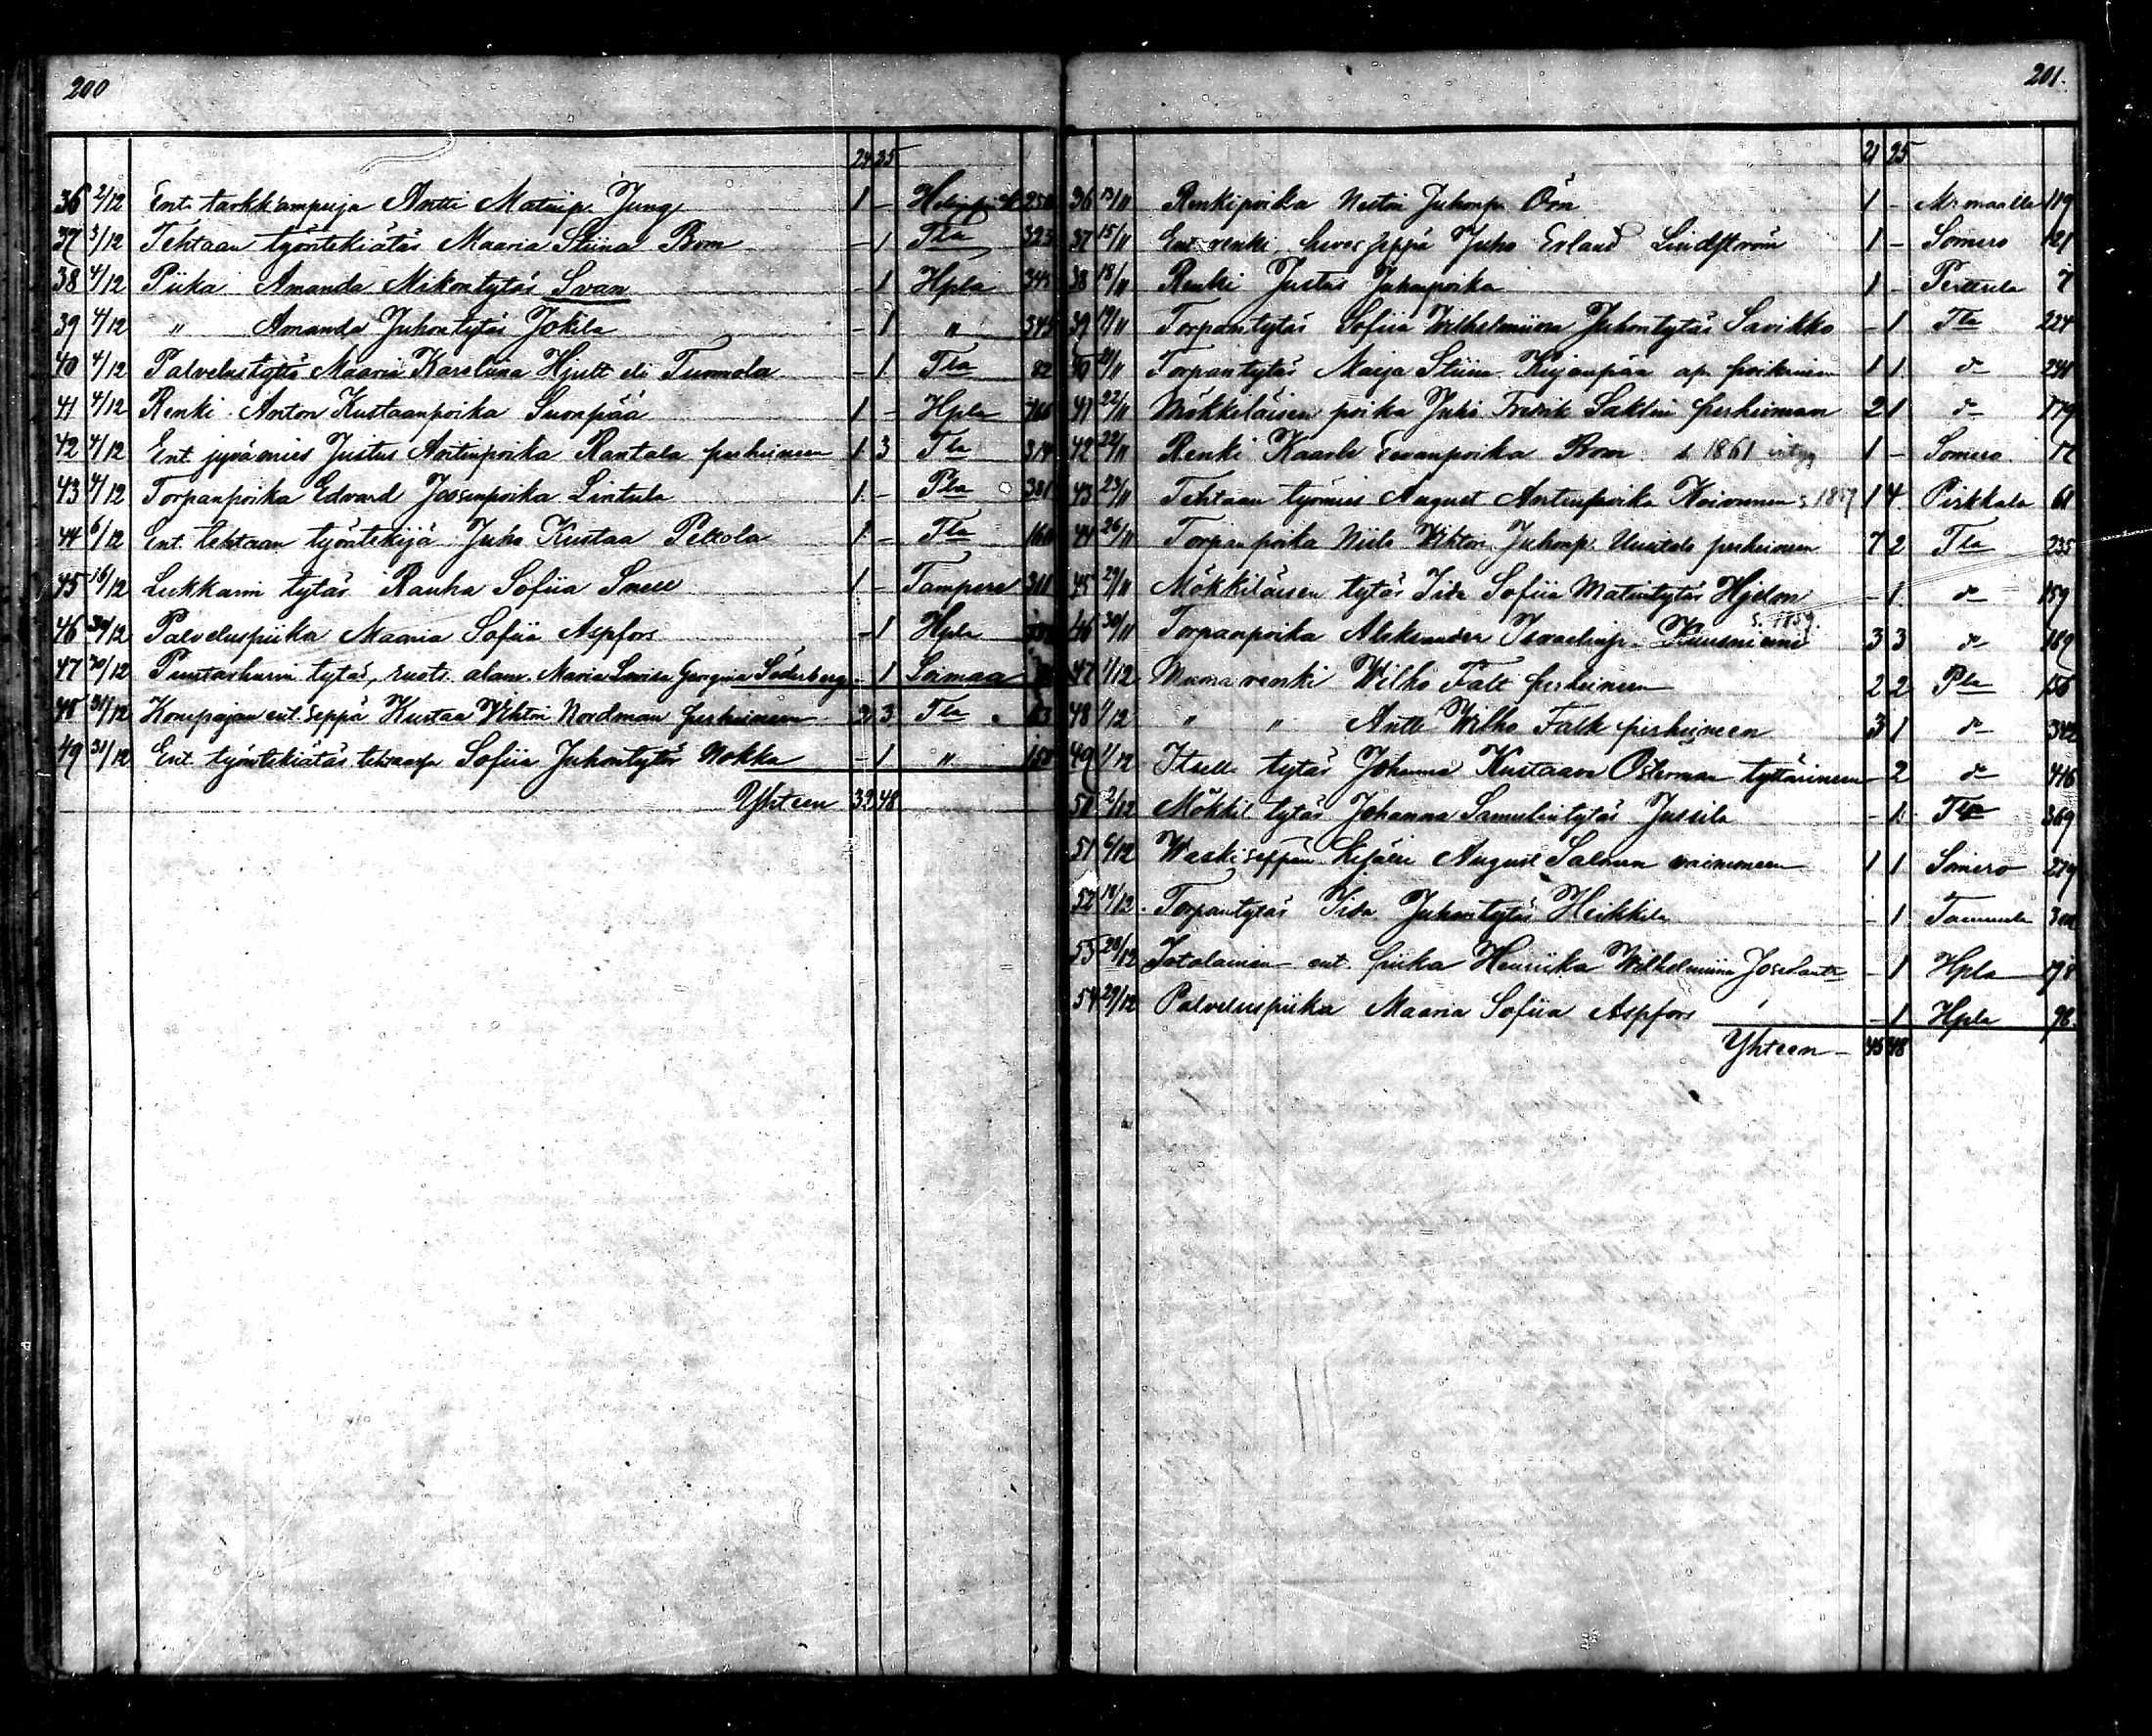 200
24 35
36 2/12 Ent. tarkkampuja Antti Matinp. Jung 1 -
37 3/12 Tehtaan työntekiätär Maaria Stiina Bom - 1 Tla 323
38 4/12 Piika Amanda Mikontytär Svan - 1 Hpla 345
39 4/12 " Amanda Juhontytär Jokila - 1 " 345
40 4/12 Palvelustyttö Maaria Karoliina Hjult eli Tuomola - 1 Tla 82
41 4/12 Renki Anton Kustaanpoika Suonpää 1 - Hpla
42 4/12 Ent. jyvämies Justus Antinpoika Rantala perheineen 1 3 Tla 314
43 4/12 Torpanpoika Edvard Joosenpoika Lintula 1 - Pla 381
44 6/12 Ent. tehtaan työntekijä Juho Kustaa Peltola 1 - Tla
45 16/12 Lukkarin tytär Rauha Sofiia Snell 1 - Tampere 311
46 30/12 Palveluspiika Maaria Sofiia Aspfors - 1 Hpla
47 30/12 Puutarhurin tytär, ruots. alam. Maria Lovisa Georgina Söderberg - 1 Loimaa
48 31/12 Konepajan ent. seppä Kustaa Vihtori Nordman perheineen 2 3 Tla
49 31/12 Ent. työntekiätär tehtaassa Sofiia Juhontytär Nokka - 1 " 150
Yhteen 32 48
201.
21 25
36 13/11 Renkipoika Nestori Juhonp. Örn 1 - 119
37 15/11 Ent. renki, Juho Erland Lindström 1 - Somero 121
38 18/11 Renki Justus Juhonpoika 1 - Perttula 7
39 19/11 Torpantytär Sofiia Wilhelmiina Juhontytär Savikko - 1 Tla 224
40 21/11 Torpantytär Maija Stiina ap. poikineen 1 1 d:o 241
41 22/11 Mökkiläisen poika Juho Fredrik Saklin perheineen 2 1 d:o 179
42 22/11 Renki Kaarle Eevanpoika Bom s. 1861 1 - Somero
43 23/11 Tehtaan työmies August Antinpoika Koivunen s. 1857 1 4 Pirkkala 61
44 26/11 Torpanpoika Niilo Vihtori Juhonp. Uusitalo perheineen 7 2 Tla 235
45 29/11 Mökkiläisen tytär Iida Sofiia Matintytär Hjelm - 1 d:o 159
s. 1859.
46 30/11 Torpanpoika Aleksander Israelinp. Kuusniemi 3 3 d:o 189
47 1/12 Muona renki Wilho Falk perheineen 2 2 Pla 156
48 1/12 " " Antti Wilho Falk perheineen 3 1 d:o 342
49 1/12 Itsell. tytär Johanna Kustaava Österman tyttärineen - 2 d:o 416
50 2/12 Mökkil. tytär Johanna Samulintytär Jussila - 1 Tla 369
51 6/12 Waskisepän August Salmen vaimoneen 1 1 Somero 279
52 18/12 Torpantytär Iida Juhontytär Heikkilä - 1 Tammela
53 28/12 ent. piika Henriika Wilhelmiina - 1 Hpla 198
54 29/12 Palveluspiika Maaria Sofiia Aspfors - 1 Hpla 98.
Yhteen 45 48